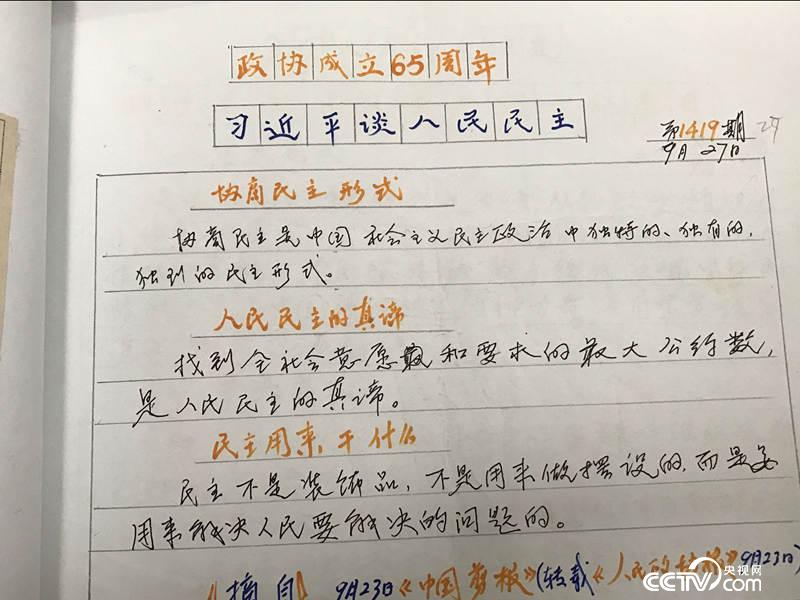 政协成立65周年
习近平谈人民民主
第1419期
9月27日
协商民主形式
协商民主是中国社会主义民主政治中独特的、独有的，
独到的民主形式。
人民民主的真谛
找到全社会意愿和要求的最大公约数，
是人民民主的真谛。
民主用来干什么
民主不是装饰品，不是用来做摆设的，而是要
用来解决人民要解决的问题的。
摘自 9月23日《中国剪报》(转载《人民政协报》9月23日)
CCTV.com 央视网